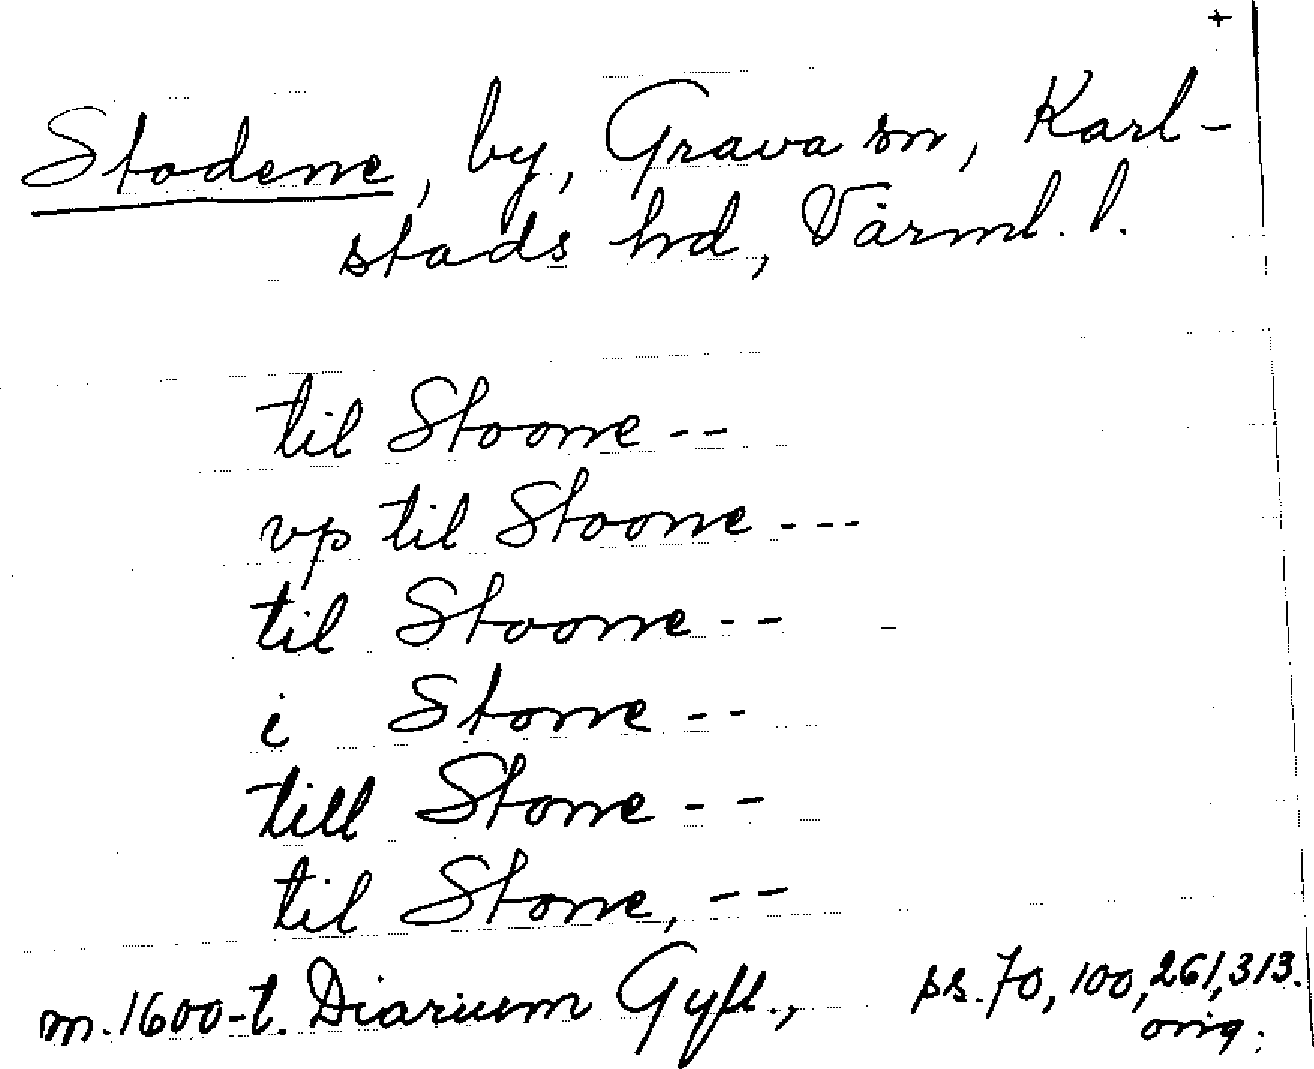 +
Stodene, by, Grava sn, Karl-
stads hd, Värml. l.
til Stoone --
vp til Stoone ---
til Stoone --
i Stone --
till Stone --
til Stone, --
m. 1600-t. Diarium Gyll., ss. 70, 100, 261, 313.
orig.